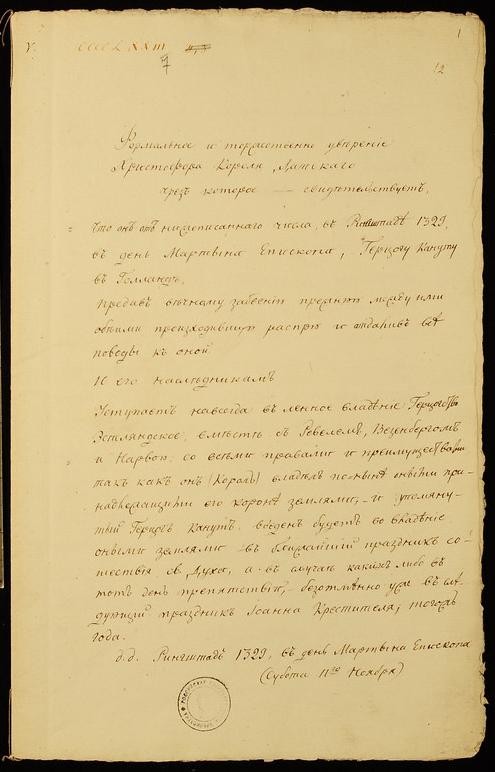 V. CCCCLXXIII
7
1
12
Формальное и торжественно увѣренiе
Христофора Короля Датскаго
чрезъ которое — свидѣтельствуетъ,
Что онъ отъ нижеписаннаго числа, въ Рингштадѣ 1329,
въ день Мартина Епископа, Герцогу Кануту
въ Голландъ,
предавъ вѣчному забвенiю прежнiя между ими
обѣими происходившую распрю и отдаливъ всѣ
поводы къ оной
И его наслѣдникамъ
Уступаетъ навсегда въ ленное владѣнiе Герцогство
Эстляндское, вмѣстѣ съ Ревелемъ, Везенбергомъ
и Нарвою; со всѣми правами и преимуществами
такъ какъ онъ (Король) владѣлъ понынѣ оными при-
надлежащими его коронѣ землями, — и упомяну-
тый Герцогъ Канутъ введенъ будетъ во владѣнiе
оными землями въ ближайшiй праздникъ со-
шествiя св. Духа, а въ случаѣ какихъ либо въ
тотъ день препятствiй, — безотмѣнно уже въ слѣ-
дующiй праздникъ Iоанна Крестителя; тогожъ
года.
д.д. Рингштадъ 1329, въ день Мартина Епископа
(Субота 11го Ноября)